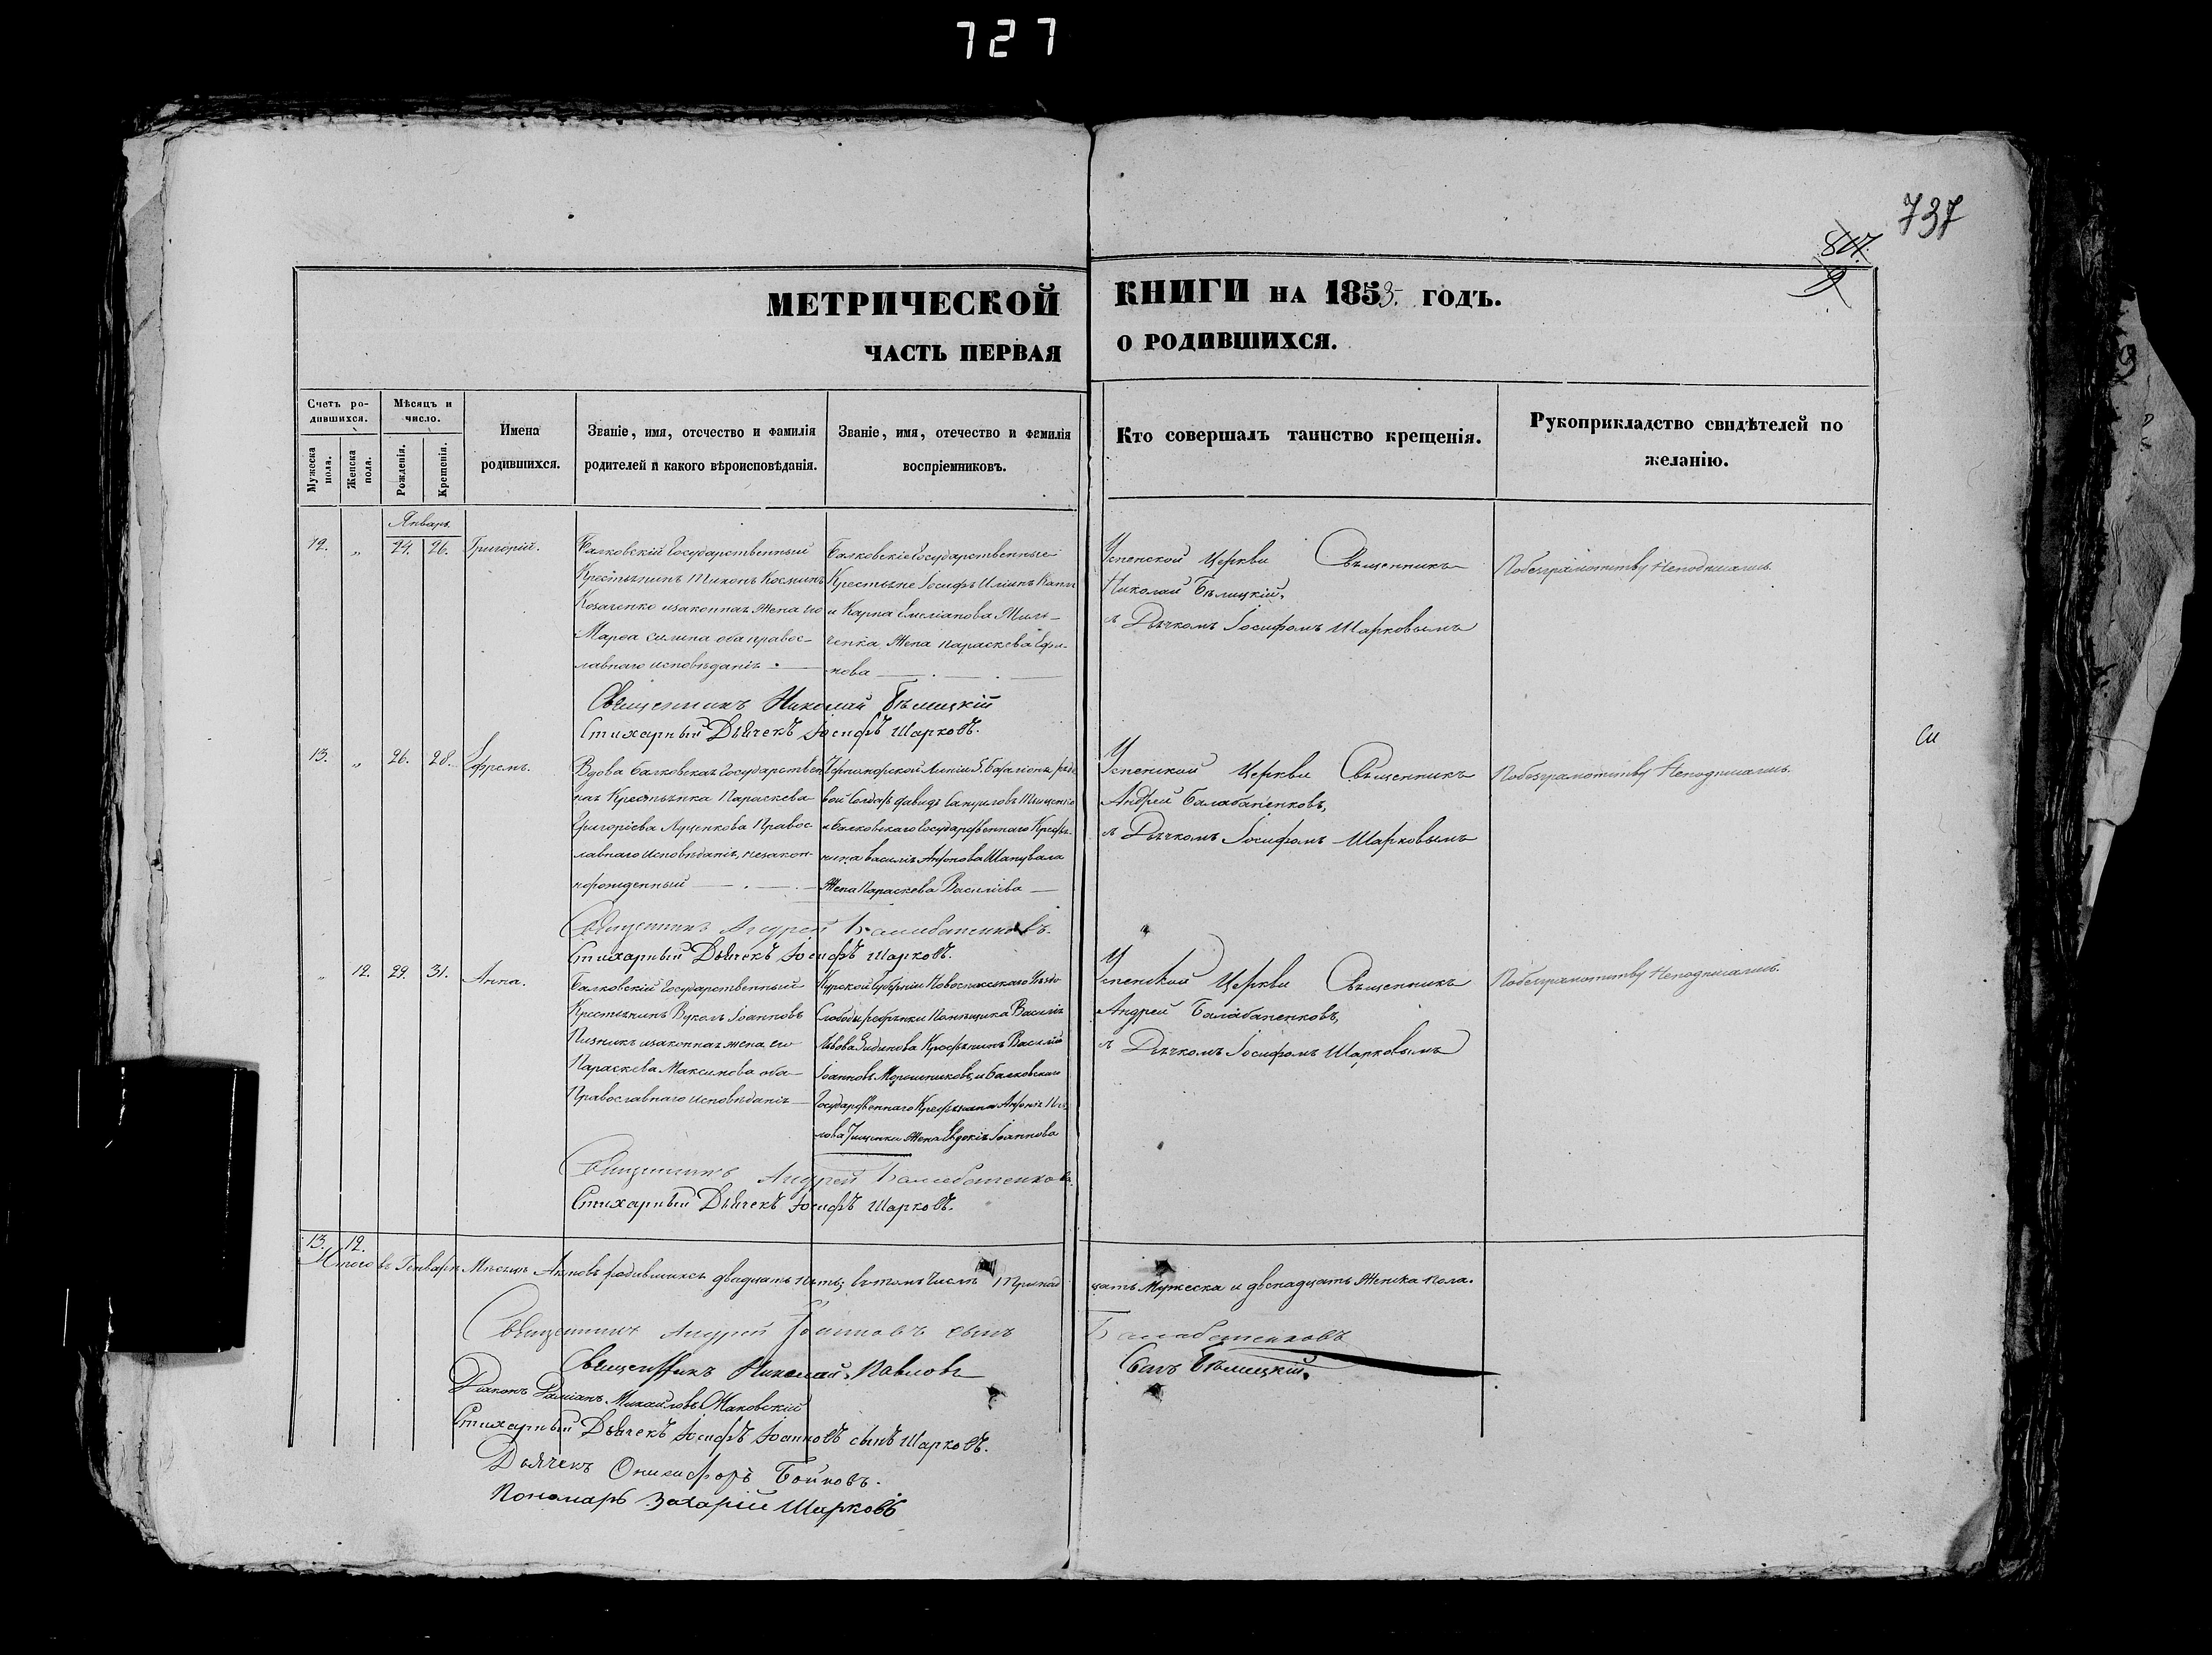 727
737
807.
9
МЕТРИЧЕСКОЙ КНИГИ НА 1853. ГОДЪ.
ЧАСТЬ ПЕРВАЯ О РОДИВШИХСЯ.
Счетъ ро-
дившихся.
Мужеска пола.
Женска пола.
Мѣсяцъ и
число.
Рожденія.
Крещенія.
Имена
родившихся.
Званіе, имя, отечество и фамилія
родителей и какого вѣроисповѣданія.
Званіе, имя, отечество и фамилія
воспріемниковъ.
Кто совершалъ таинство крещенія.
Рукоприкладство свидѣтелей по
желанію.
Январь.
12. „ 24. 26. Григорій.
Балковскій Государственный
Крестьянинъ Тихонъ Косминъ
Козаченко изаконная жена его
Марѳа Силина оба правос-
лавнаго исповѣданія
Балковскіе Государственные
Крестьяне Іосифъ Иліинъ
и Карпа Емеліанова Жиль-
ченка, Жена Параскева Ефи-
мова
Успенской Церкви Священникъ
Николай Бѣлицкій,
съ Дьячкомъ Іосифомъ Шарковымъ
Побезграмотству Неподписались.
Священникъ Николай Бѣлицкій
Стихарный Дьячекъ Іосифъ Шарковъ.
13. „ 26. 28. Ефремъ.
Вдова Балковская Государствен
ная Крестьянка Параскева
Григоріева Луценкова Правос-
лавнаго исповѣданія, незакон-
норожденный
Черноморской Линіи 5. Баталіона рядо
вой Солдатъ Давидъ Тищенко
и Балковскаго Государственнаго Кресть-
янина Василія Антонова Шаповала
Жена Параскева Василіева
Успенской Церкви Священникъ
Андрей Балабаненковъ,
съ Дьячкомъ Іосифомъ Шарковымъ
Побезграмотству Неподписались.
Священникъ Андрей Балабаненковъ.
Стихарный Дьячекъ Іосифъ Шарковъ.
„ 12. 29. 31. Анна.
Балковскій Государственный
Крестьянинъ Вуколъ Іоанновъ
Пизникъ изаконная жена его
Параскева Максимова оба
Православнаго исповѣданія
Курской Губерніи Уѣзда
Слободы Помѣщика Василія
Львова Крестьянинъ Василій
Іоанновъ Мирошниковъ, и Балковскаго
Государственнаго Крестьянина Антонія
лова Тищенка Жена Евдокія Іоаннова
Успенской Церкви Священникъ
Андрей Балабаненковъ,
съ Дьячкомъ Іосифомъ Шарковымъ
Побезграмотству Неподписались.
Священникъ Андрей Балабаненковъ.
Стихарный Дьячекъ Іосифъ Шарковъ.
13. 12.
Итого въ Генварѣ Мѣсяцѣ Актовъ родившихся двадцать пять; въ томъ числѣ Тринад цать Мужеска и двенадцать Женска пола.
Священникъ Андрей Іоанновъ сынъ Балабаненковъ
Священникъ Николай Павловъ Сынъ Бѣлицкій.
Діаконъ Даміанъ Михайловъ Маковскій
Стихарный Дьячекъ Іосифъ Іоанновъ сынъ Шарковъ.
Дьячекъ Онисифоръ Бойковъ.
Пономарь Захарій Шарковъ